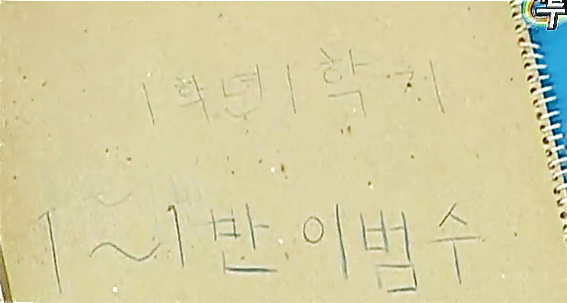 1학년 1학기
1~1반 이범수